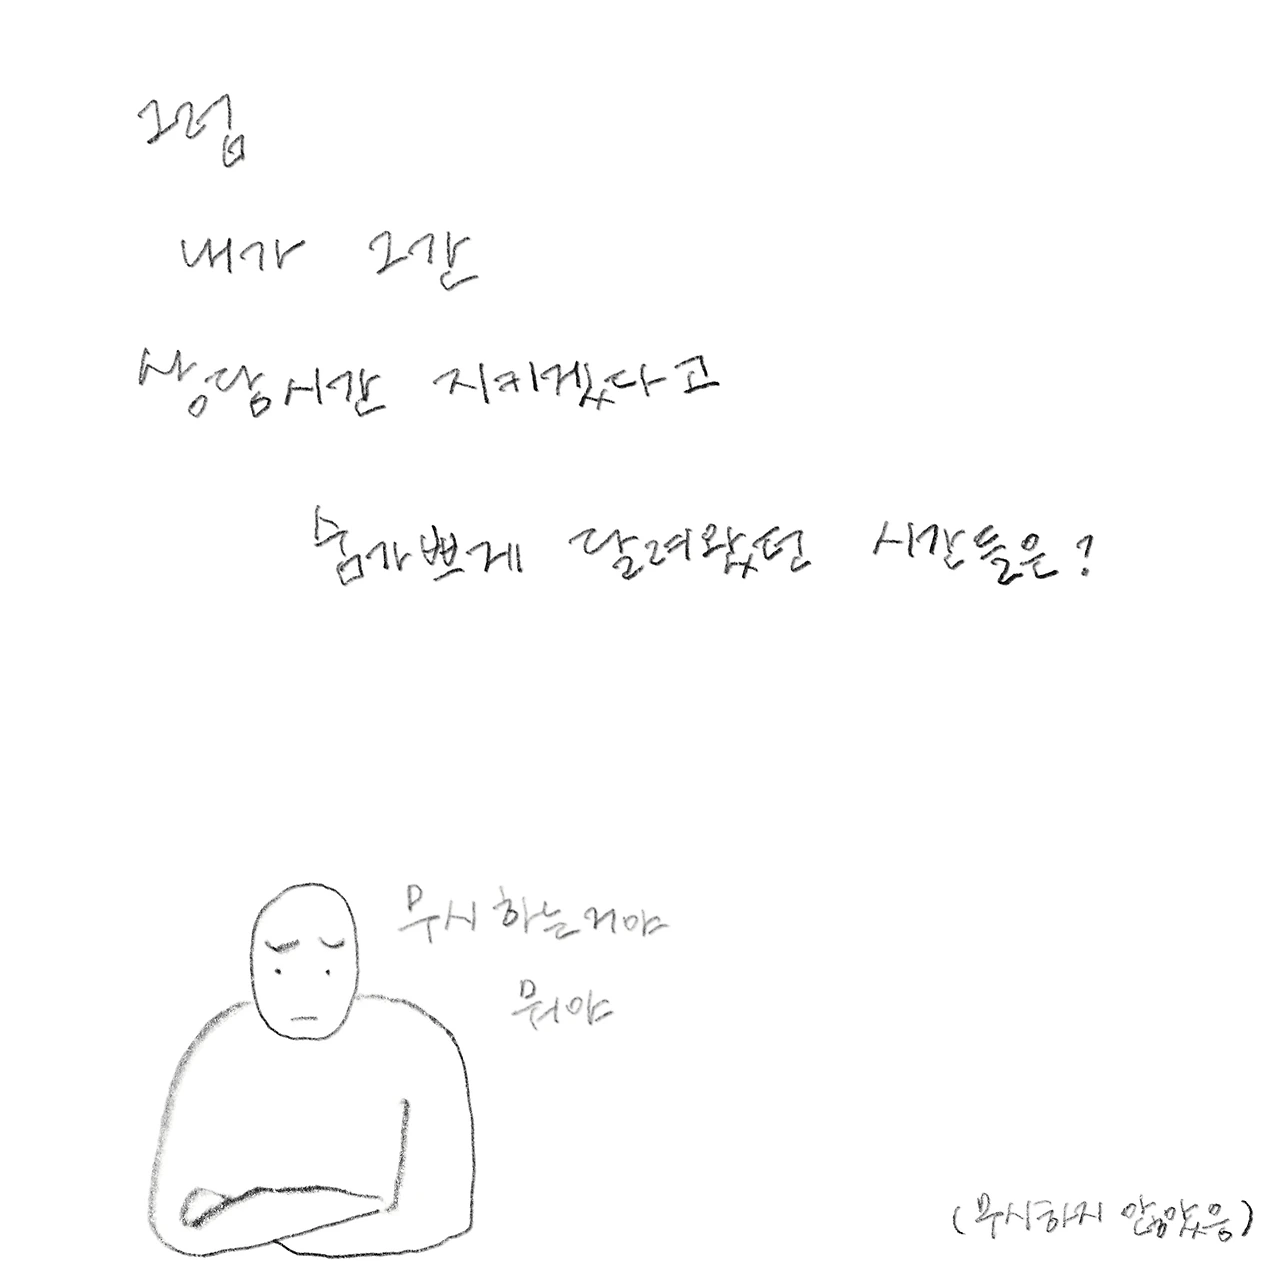 그럼
내가 그간
상담시간 지키겠다고
숨가쁘게 달려왔던 시간들은?
무시하는거야
뭐야
(무시하지 않았음)